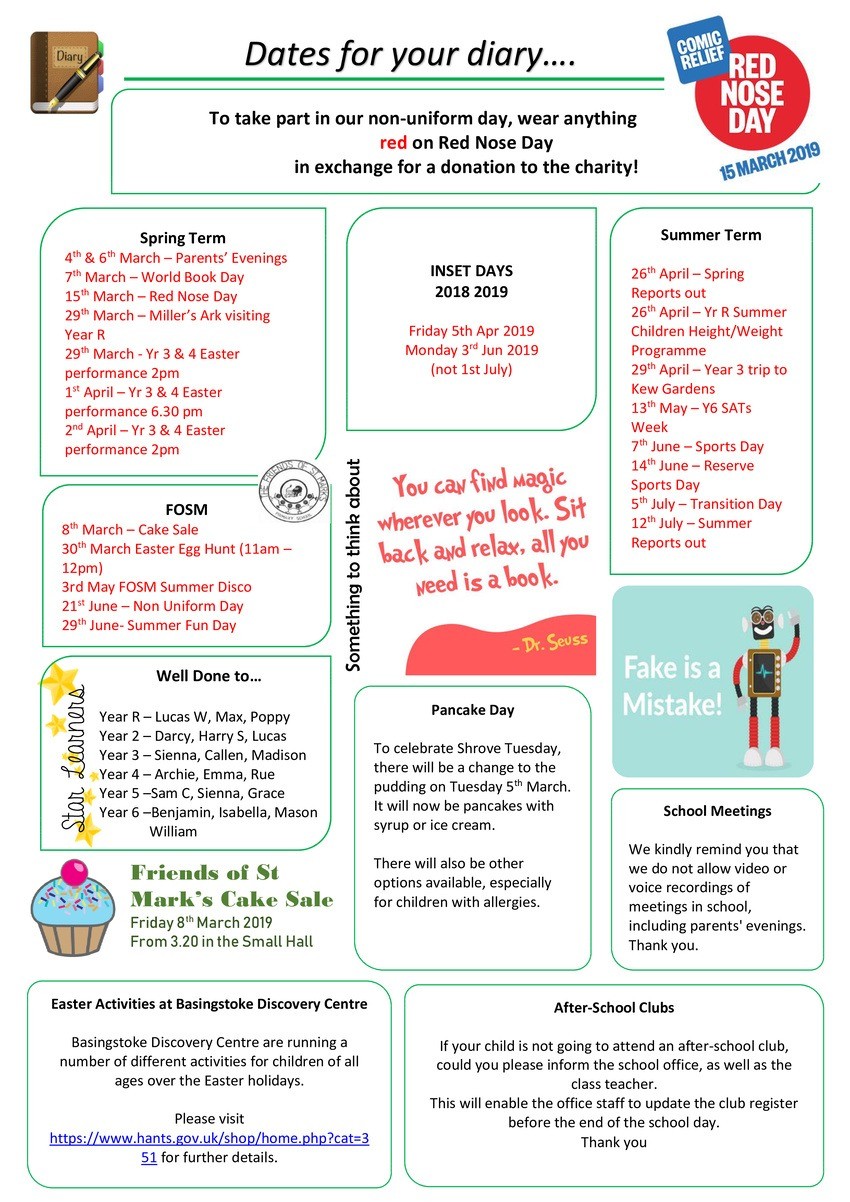 Diary
Dates for your diary....
COMIC
RELIEF
RED
NOSE
DAY
15 MARCH 2019
To take part in our non-uniform day, wear anything
red on Red Nose Day
in exchange for a donation to the charity!
Spring Term
4th & 6th March – Parents' Evenings
7th March – World Book Day
15th March – Red Nose Day
29th March – Miller's Ark visiting
Year R
29th March - Yr 3 & 4 Easter
performance 2pm
1st April – Yr 3 & 4 Easter
performance 6.30 pm
2nd April – Yr 3 & 4 Easter
performance 2pm
INSET DAYS
2018 2019
Friday 5th Apr 2019
Monday 3rd Jun 2019
(not 1st July)
Summer Term
26th April – Spring
Reports out
26th April – Yr R Summer
Children Height/Weight
Programme
29th April – Year 3 trip to
Kew Gardens
13th May – Y6 SATs
Week
7th June – Sports Day
14th June – Reserve
Sports Day
5th July – Transition Day
12th July – Summer
Reports out
THE FRIENDS OF ST MARKS
PRIMARY SCHOOL
FOSM
8th March – Cake Sale
30th March Easter Egg Hunt (11am –
12pm)
3rd May FOSM Summer Disco
21st June – Non Uniform Day
29th June- Summer Fun Day
Something to think about
You can find magic
wherever you look. Sit
back and relax, all you
need is a book.
- Dr. Seuss
Fake is a
Mistake!
Star Learners
Well Done to…
Year R – Lucas W, Max, Poppy
Year 2 – Darcy, Harry S, Lucas
Year 3 – Sienna, Callen, Madison
Year 4 – Archie, Emma, Rue
Year 5 –Sam C, Sienna, Grace
Year 6 –Benjamin, Isabella, Mason
William
Pancake Day
To celebrate Shrove Tuesday,
there will be a change to the
pudding on Tuesday 5th March.
It will now be pancakes with
syrup or ice cream.
There will also be other
options available, especially
for children with allergies.
School Meetings
We kindly remind you that
we do not allow video or
voice recordings of
meetings in school,
including parents' evenings.
Thank you.
Friends of St
Mark's Cake Sale
Friday 8th March 2019
From 3.20 in the Small Hall
Easter Activities at Basingstoke Discovery Centre
Basingstoke Discovery Centre are running a
number of different activities for children of all
ages over the Easter holidays.
Please visit
https://www.hants.gov.uk/shop/home.php?cat=3
51 for further details.
After-School Clubs
If your child is not going to attend an after-school club,
could you please inform the school office, as well as the
class teacher.
This will enable the office staff to update the club register
before the end of the school day.
Thank you